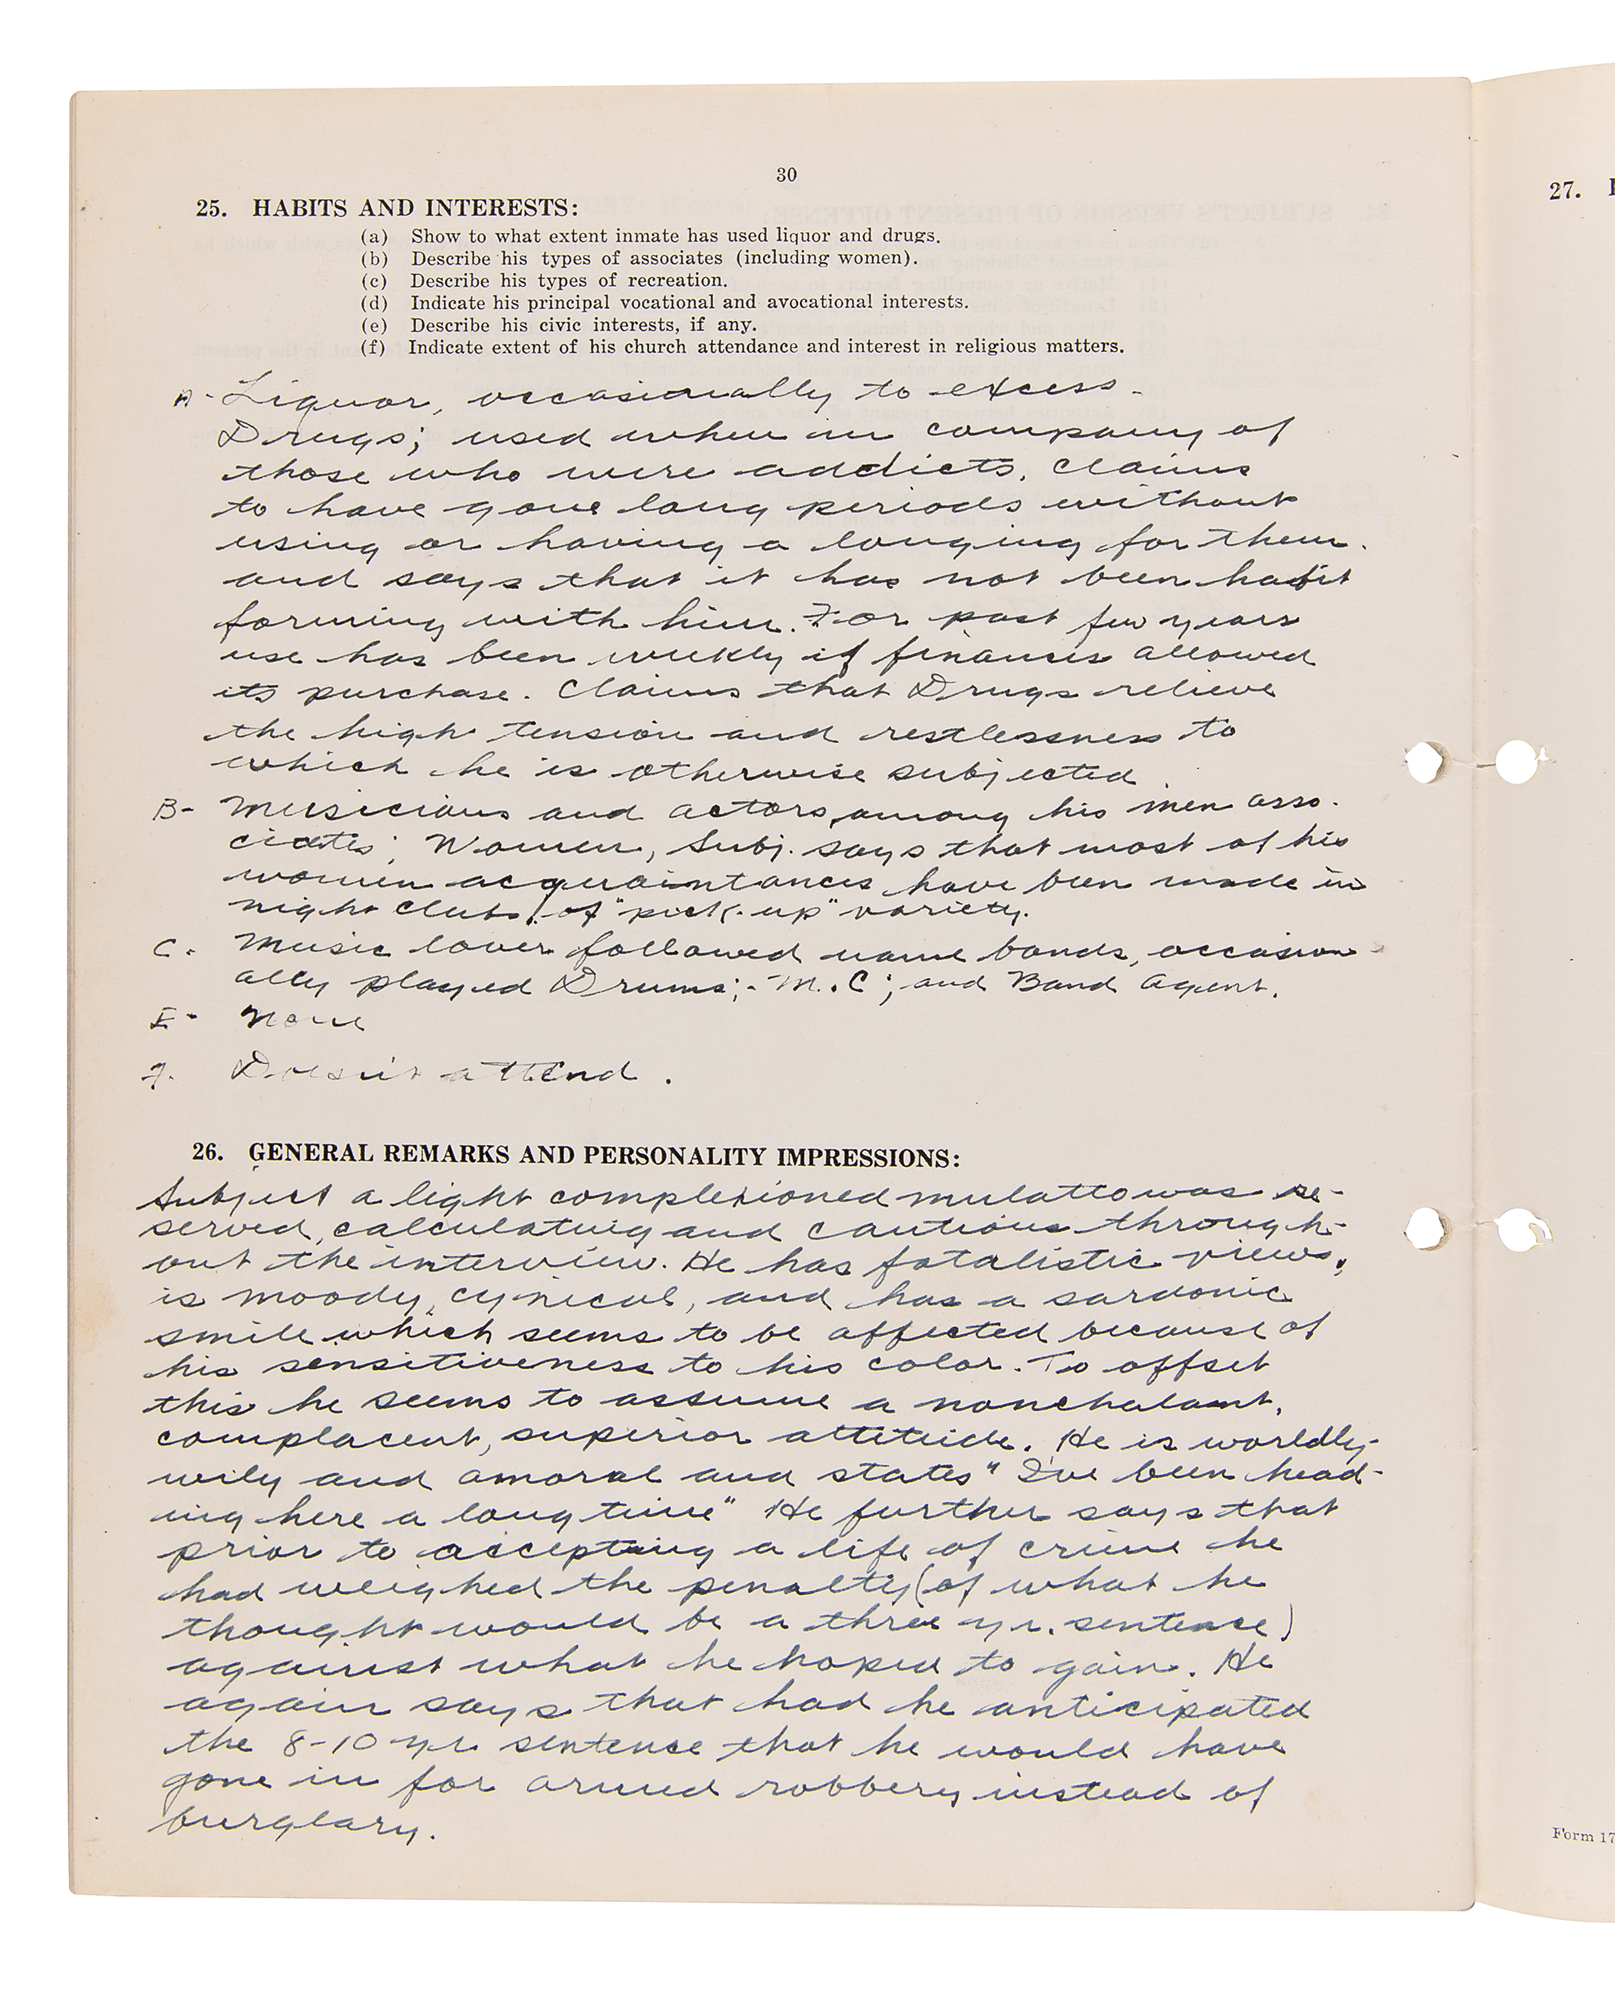 30
25. HABITS AND INTERESTS:
(a) Show to what extent inmate has used liquor and drugs.
(b) Describe his types of associates (including women).
(c) Describe his types of recreation.
(d) Indicate his principal vocational and avocational interests.
(e) Describe his civic interests, if any.
(f) Indicate extent of his church attendance and interest in religious matters.
A- Liquor, occasionally to excess.
Drugs; used when in company of
those who were addicts. Claims
to have gone long periods without
using or having a longing for them.
and says that it has not been habit
forming with him. For past few years
use has been weekly if finances allowed
its purchase. Claims that Drugs relieve
the high tension and restlessness to
which he is otherwise subjected.
B- Musicians and actors, among his men asso-
ciates; Women, Subj. says that most of his
women acquaintances have been made in
night clubs, of "pick-up" variety.
C. Music lover followed name bands, occasion-
ally played Drums;- M.C; and Band Agent.
E- None
F. Doesn't attend.
26. GENERAL REMARKS AND PERSONALITY IMPRESSIONS:
Subject a light complexioned mulatto was re-
served, calculating and cautious through-
out the interview. He has fatalistic views,
is moody, cynical, and has a sardonic
smile which seems to be affected because of
his sensitiveness to his color. To offset
this he seems to assume a nonchalant,
complacent, superior attitude. He is worldly-
wily and amoral and states "I've been head-
ing here a long time" He further says that
prior to accepting a life of crime he
had weighed the penalty (of what he
thought would be a three yr. sentence)
against what he hoped to gain. He
again says that had he anticipated
the 8-10 yr. sentence that he would have
gone in for armed robbery instead of
burglary.
27.
Form 17